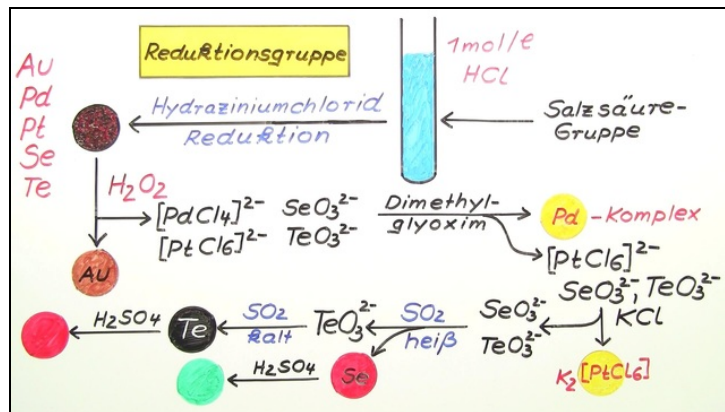 Reduktionsgruppe
1mol/l
HCl
Au
Pd
Pt
Se
Te
Hydraziniumchlorid
Reduktion
Salzsäure-
Gruppe
H2O2
[PdCl4]2- SeO3 2-
[PtCl6]2- TeO3 2-
Dimethyl-
glyoxim
Pd -Komplex
Au
[PtCl6]2-
SeO3 2-, TeO3 2-
KCl
H2SO4
Te
SO2
kalt
TeO3 2-
SO2
heiß
SeO3 2-
TeO3 2-
H2SO4
Se
K2[PtCl6]